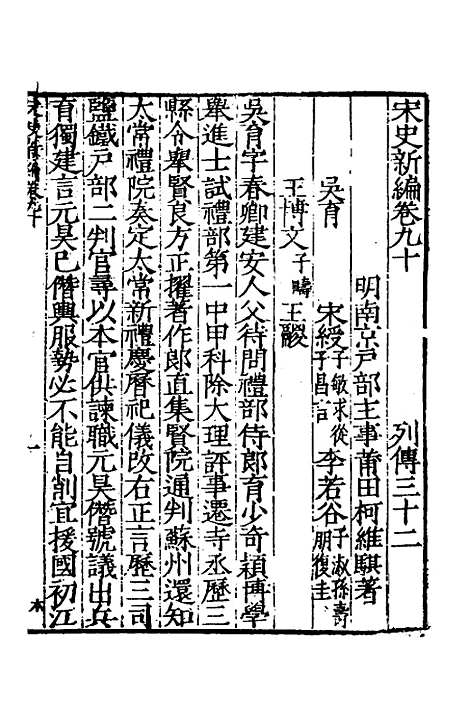 宋史新編卷九十　列傳三十二
明南京戶部主事莆田柯維騏著
吳育　宋綬子敏求從子昌言　李若谷子淑孫壽朋復圭
王博文子疇　王鬷
吳育字春卿建安人父待問禮部侍郎育少奇穎博學
舉進士試禮部第一中甲科除大理評事遷寺丞歷三
縣令舉賢良方正擢著作郎直集賢院通判蘇州還知
太常禮院奏定太常新禮慶曆祀儀改右正言歷三司
鹽鐵戶部二判官尋以本官供諫職元昊僭號議出兵
育獨建言元昊已僭輿服勢必不能自削宜援國初江
宋史新編卷九十　一